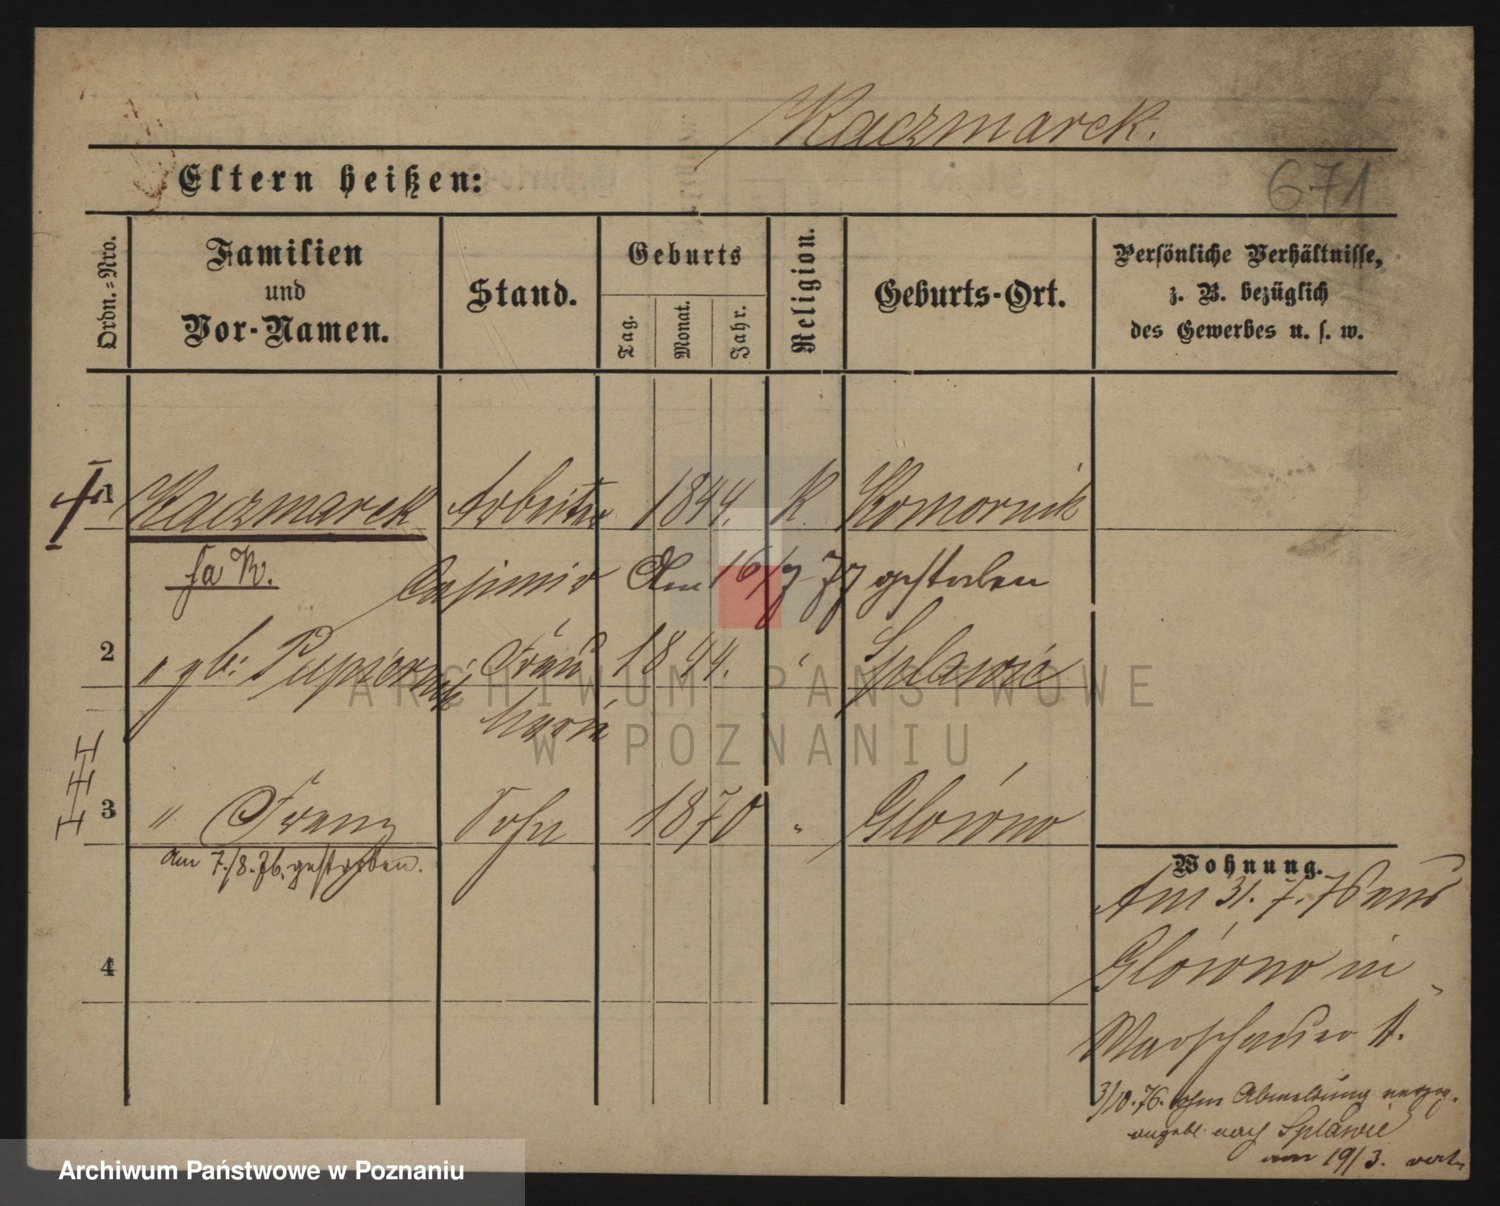 Kaczmarek.
Eltern heißen:
671
Ordn.=Nro.
Familien
und
Vor-Namen.
Stand.
Geburts
Tag.
Monat.
Jahr.
Religion.
Geburts-Ort.
Persönliche Verhältnisse,
z. B. bezüglich
des Gewerbes u. s. w.
1 Kaczmarek Arbeiter 1844. K. Komornik
fa K. Casimir Am 16/7 77 gestorben
2 " gb: Frau 1844. " Splawie
Marie
3 " Franz Sohn 1870 " Glówno
Am 7./8.76. gestorben.
Wohnung.
Am 31. 7. 76 aus
Glówno in
Warschauer st.
4
3/10.76. ohne Abmeldung verzog.
angebl. nach Splawie
am 19/3.
ARCHIWUM PAŃSTWOWE
W POZNANIU
Archiwum Państwowe w Poznaniu